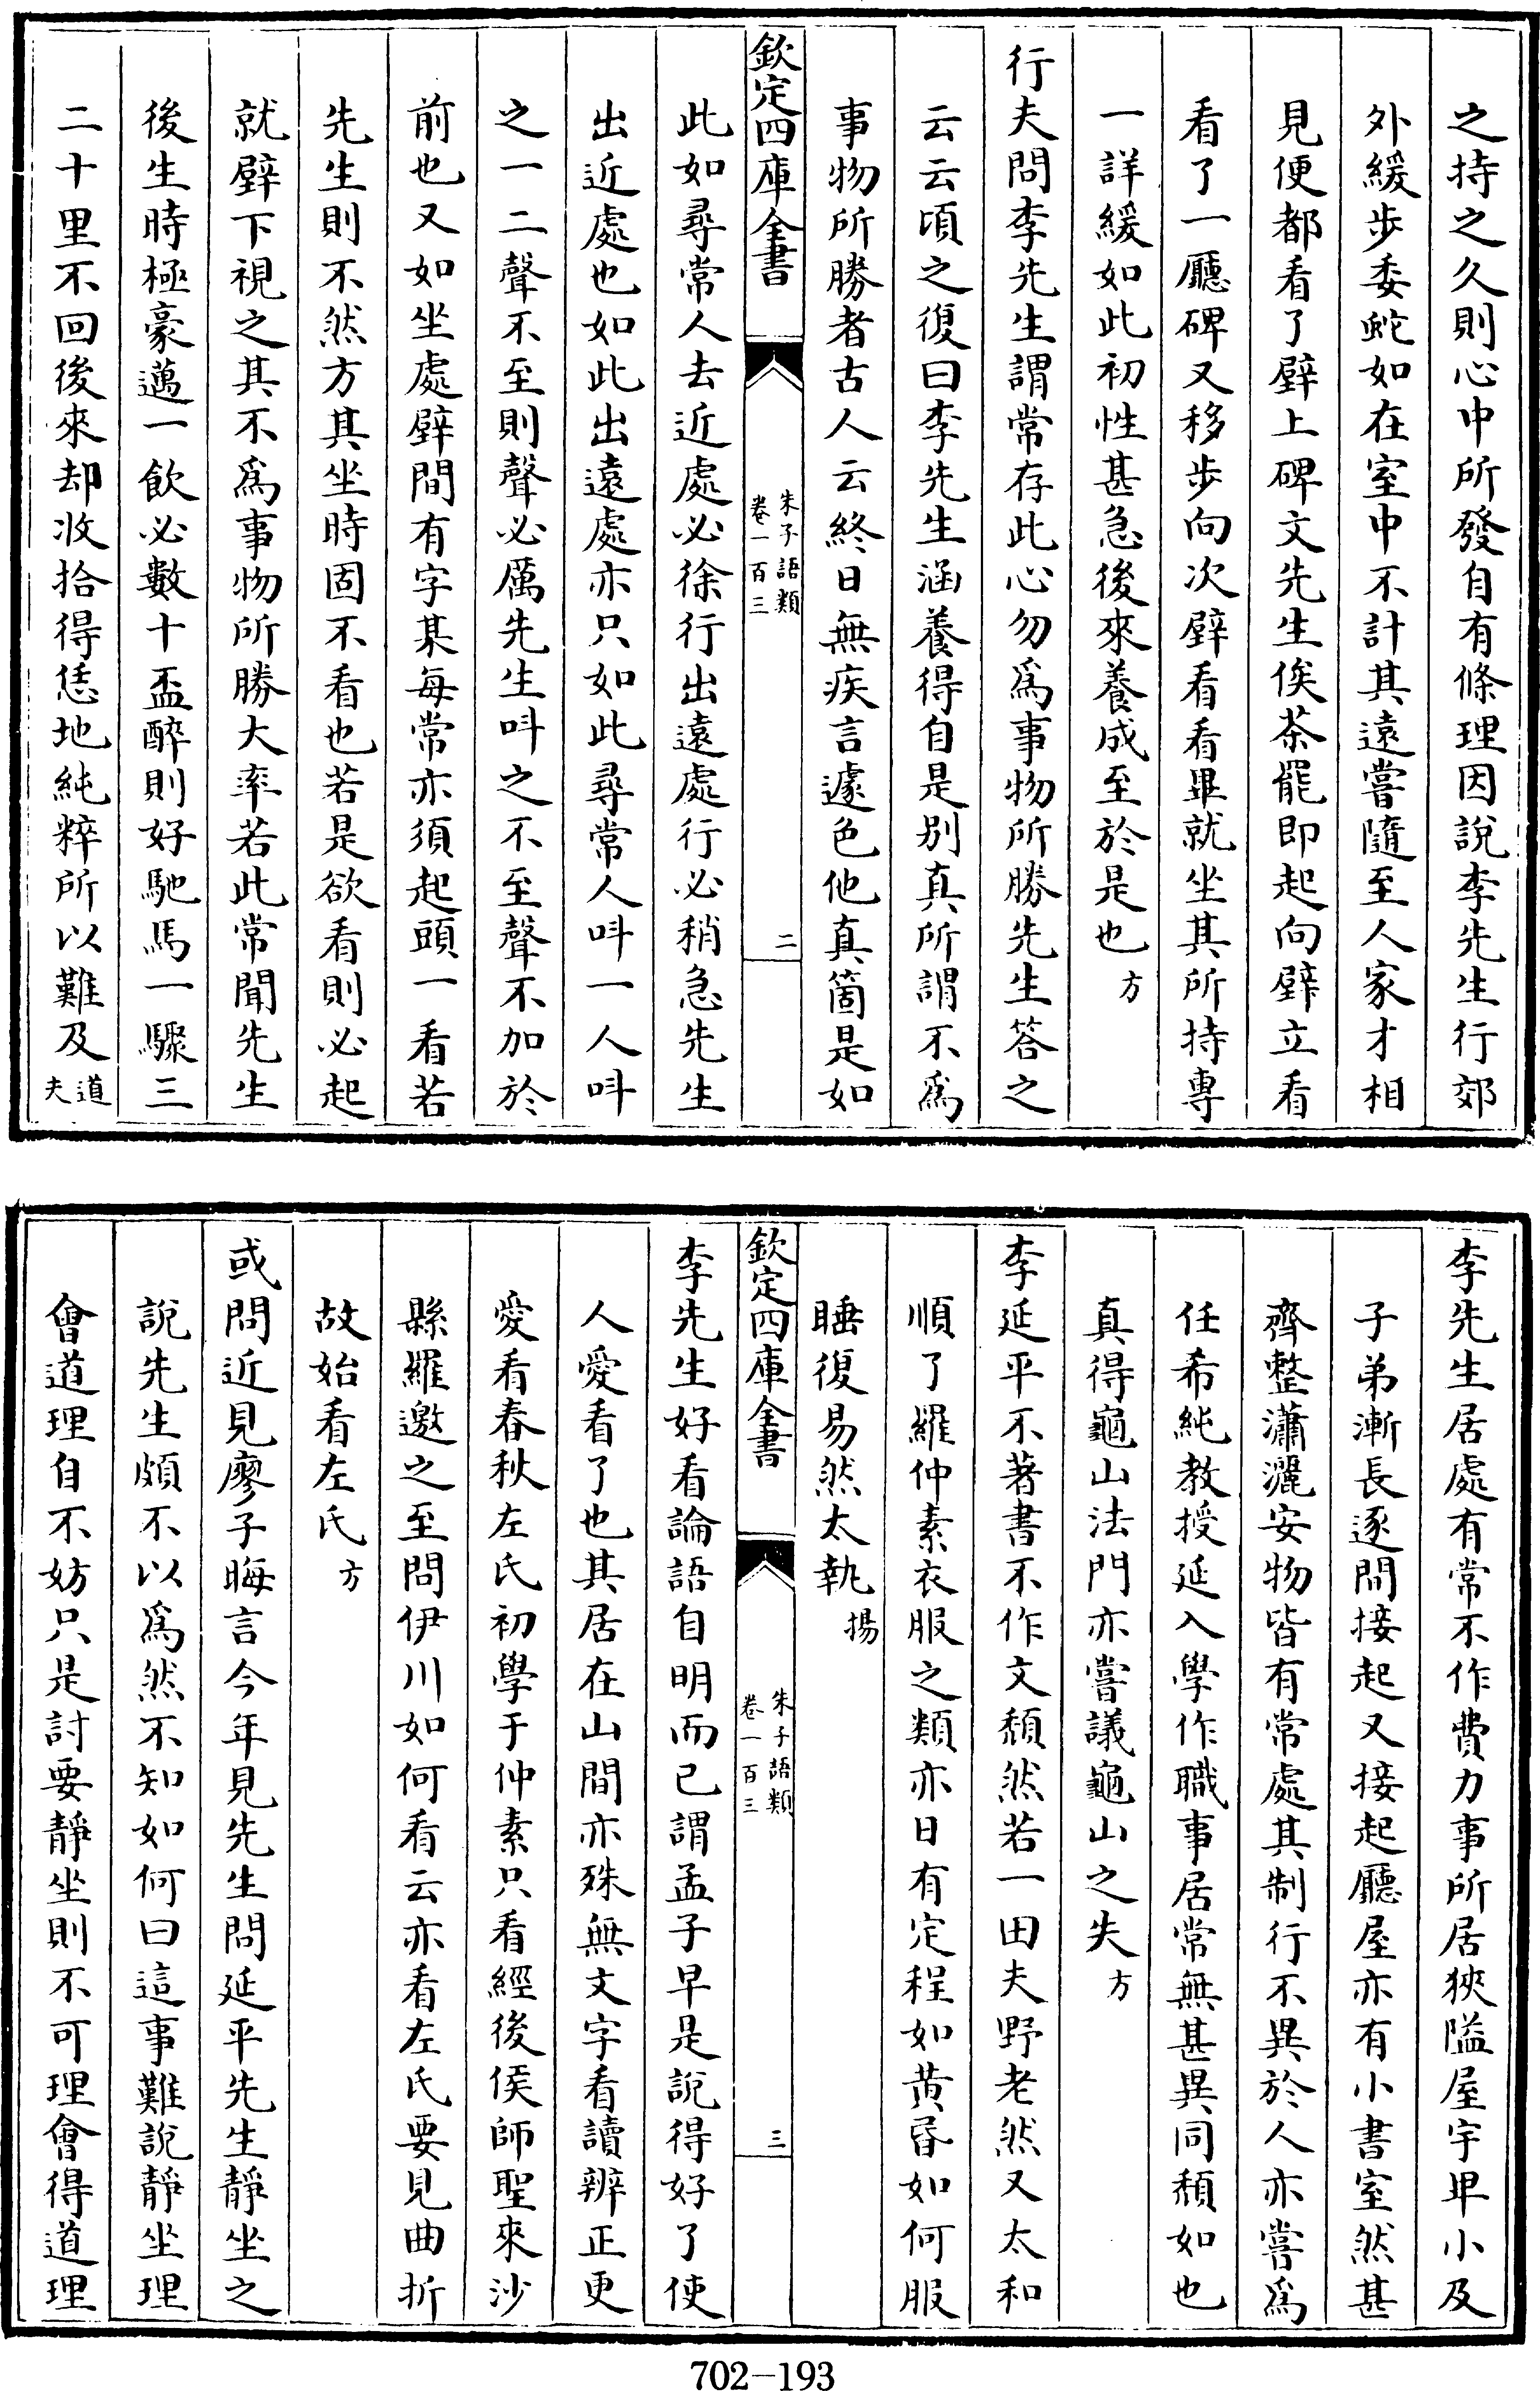 之持之久則心中所發自有條理因說李先生行郊
外緩步委蛇如在室中不計其遠嘗隨至人家才相
見便都看了壁上碑文先生俟茶罷即起向壁立看
看了一廳碑又移步向次壁看看畢就坐其所持專
一詳緩如此初性甚急後來養成至於是也方
行夫問李先生謂常存此心勿為事物所勝先生答之
云云頃之復曰李先生涵養得自是别真所謂不為
事物所勝者古人云終日無疾言遽色他真箇是如
欽定四庫全書
朱子語類
卷一百三
二
此如尋常人去近處必徐行出遠處行必稍急先生
出近處也如此出遠處亦只如此尋常人叫一人叫
之一二聲不至則聲必厲先生叫之不至聲不加於
前也又如坐處壁間有字某每常亦須起頭一看若
先生則不然方其坐時固不看也若是欲看則必起
就壁下視之其不為事物所勝大率若此常聞先生
後生時極豪邁一飲必數十盃醉則好馳馬一驟三
二十里不回後來却收拾得恁地純粹所以難及道夫
李先生居處有常不作費力事所居狹隘屋宇卑小及
子弟漸長逐間接起又接起廳屋亦有小書室然甚
齊整瀟灑安物皆有常處其制行不異於人亦嘗為
任希純教授延入學作職事居常無甚異同頹如也
真得龜山法門亦嘗議龜山之失方
李延平不著書不作文頹然若一田夫野老然又太和
順了羅仲素衣服之類亦日有定程如黄昏如何服
睡復易然太執揚
欽定四庫全書
朱子語類
卷一百三
三
李先生好看論語自明而已謂孟子早是說得好了使
人愛看了也其居在山間亦殊無文字看讀辨正更
愛看春秋左氏初學于仲素只看經後侯師聖來沙
縣羅邀之至問伊川如何看云亦看左氏要見曲折
故始看左氏方
或問近見廖子晦言今年見先生問延平先生靜坐之
說先生頗不以為然不知如何曰這事難說靜坐理
會道理自不妨只是討要靜坐則不可理會得道理
702-193